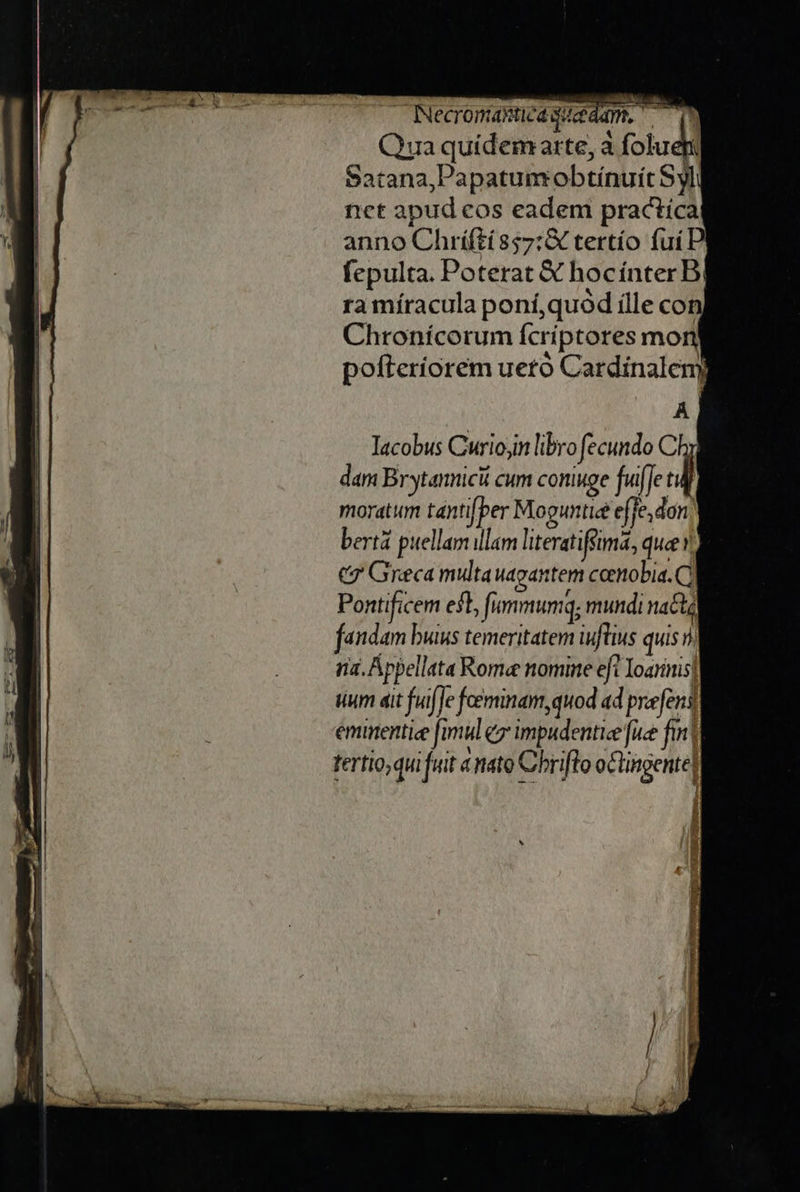 Necromantica quædam.
Qua quídem arte, à soluen
Satana, Papatum obtínuít Syl
net apud eos eadem practíca
anno Chrístí 857: & tertío fuí P
sepulta. Poterat & hoc ínter B
ra míracula poní, quòd ílle con
Chronícorum scríptores mon
posteríorem uerò Cardínalem
A
Iacobus Curio, in libro secundo Chr
dam Brytannicũ cum coniuge fuisse tu
moratum tantisper Moguntiæ esse, don
bertã puellam illam literatissimã, quæ
& Græca multa uagantem cœnobia.
Pontificem est, summumq; mundi nacta
fandam huius temeritatem iustius quis n
na. Appellata Romæ nomine est Ioannis
uum ait fuisse fœminam, quod ad præsens
eminentiæ simul & impudentiæ suæ sin
tertio, qui fuit à nato Christo octingente